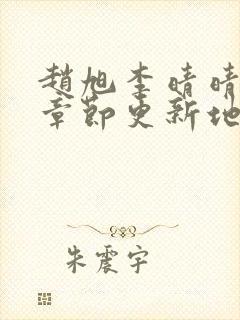 趙旭李晴晴
章節更新地
朱震宇